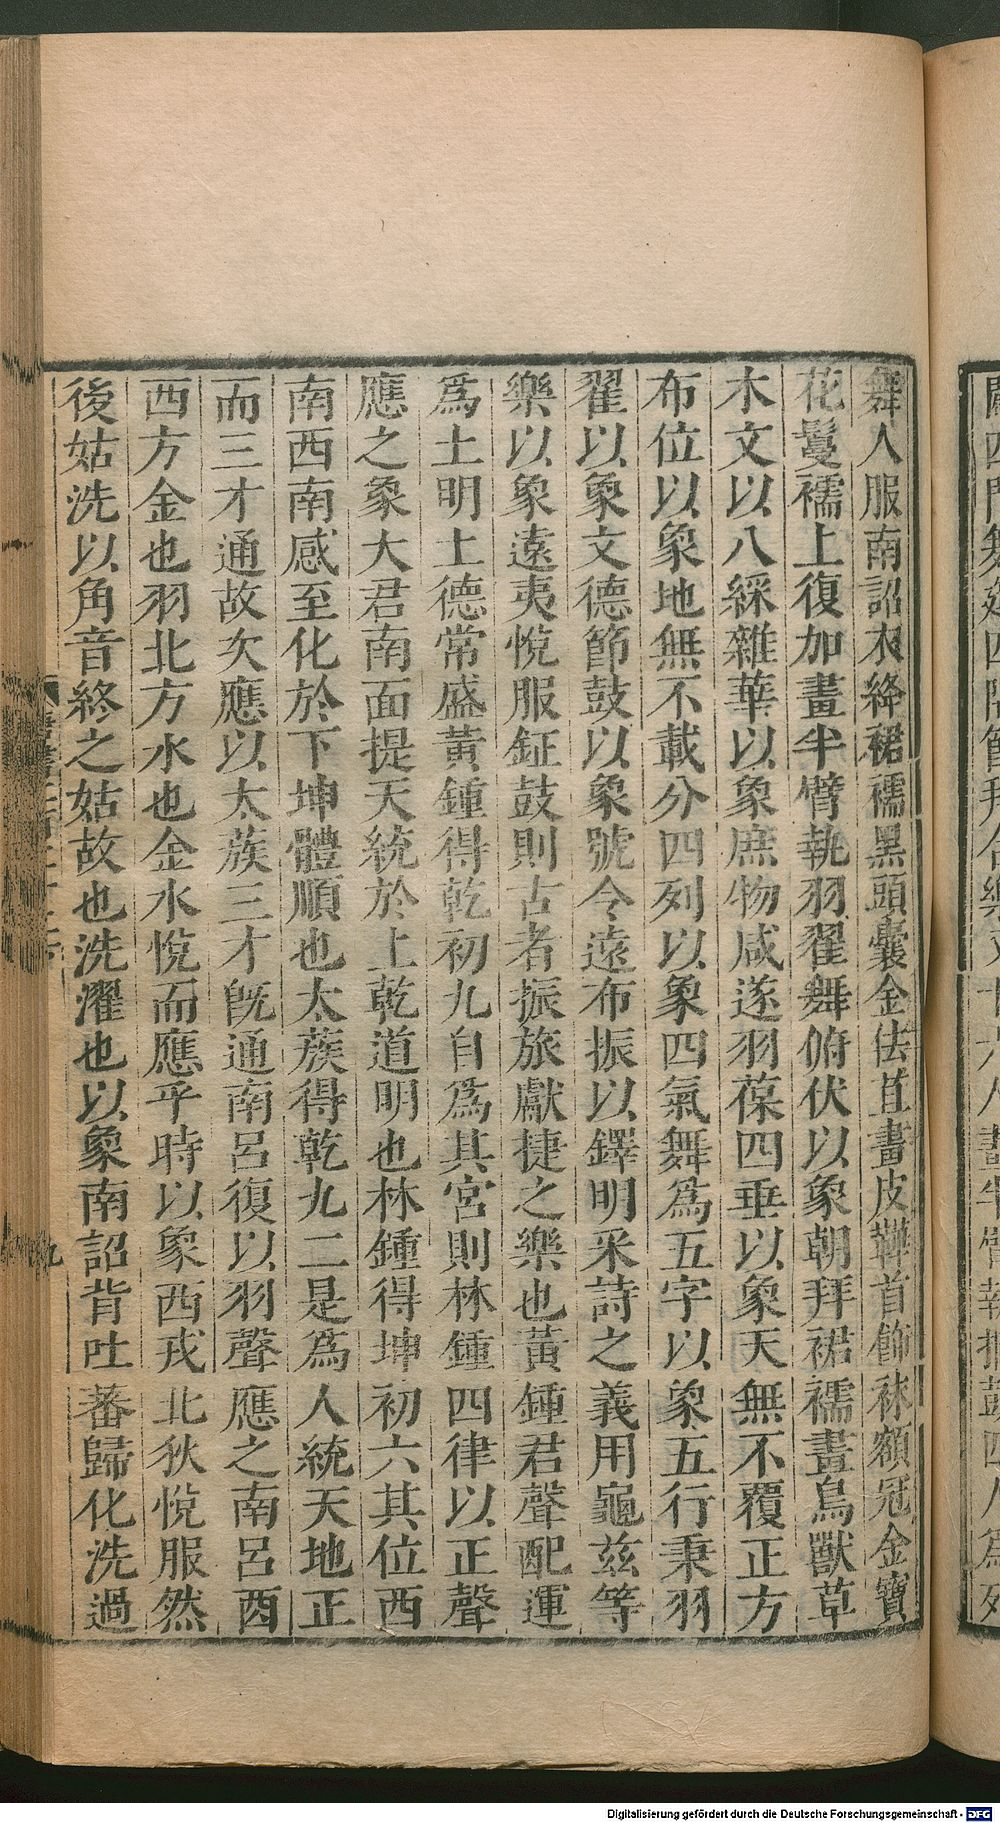 舞人服南詔衣絳裙襦黑頭囊金佉苴畫皮鞾首飾袜額冠金寶
花鬘襦上復加畫半臂執羽翟舞俯伏以象朝拜裙襦畫鳥獸草
木文以八綵雜華以象庶物咸遂羽葆四垂以象天無不覆正方
布位以象地無不載分四列以象四氣舞爲五字以象五行秉羽
翟以象文德節鼓以象號令遠布振以鐸明采詩之義用龜茲等
樂以象遠夷悅服鉦鼓則古者振旅獻捷之樂也黃鍾君聲配運
爲土明土德常盛黃鍾得乾初九自爲其宮則林鍾四律以正聲
應之象大君南面提天統於上乾道明也林鍾得坤初六其位西
南西南感至化於下坤體順也太蔟得乾九二是爲人統天地正
而三才通故次應以太蔟三才既通南呂復以羽聲應之南呂酉
西方金也羽北方水也金水悅而應乎時以象西戎北狄悅服然
後姑洗以角音終之姑故也洗濯也以象南詔背吐蕃歸化洗過
九
Digitalisierung gefördert durch die Deutsche Forschungsgemeinschaft - DFG